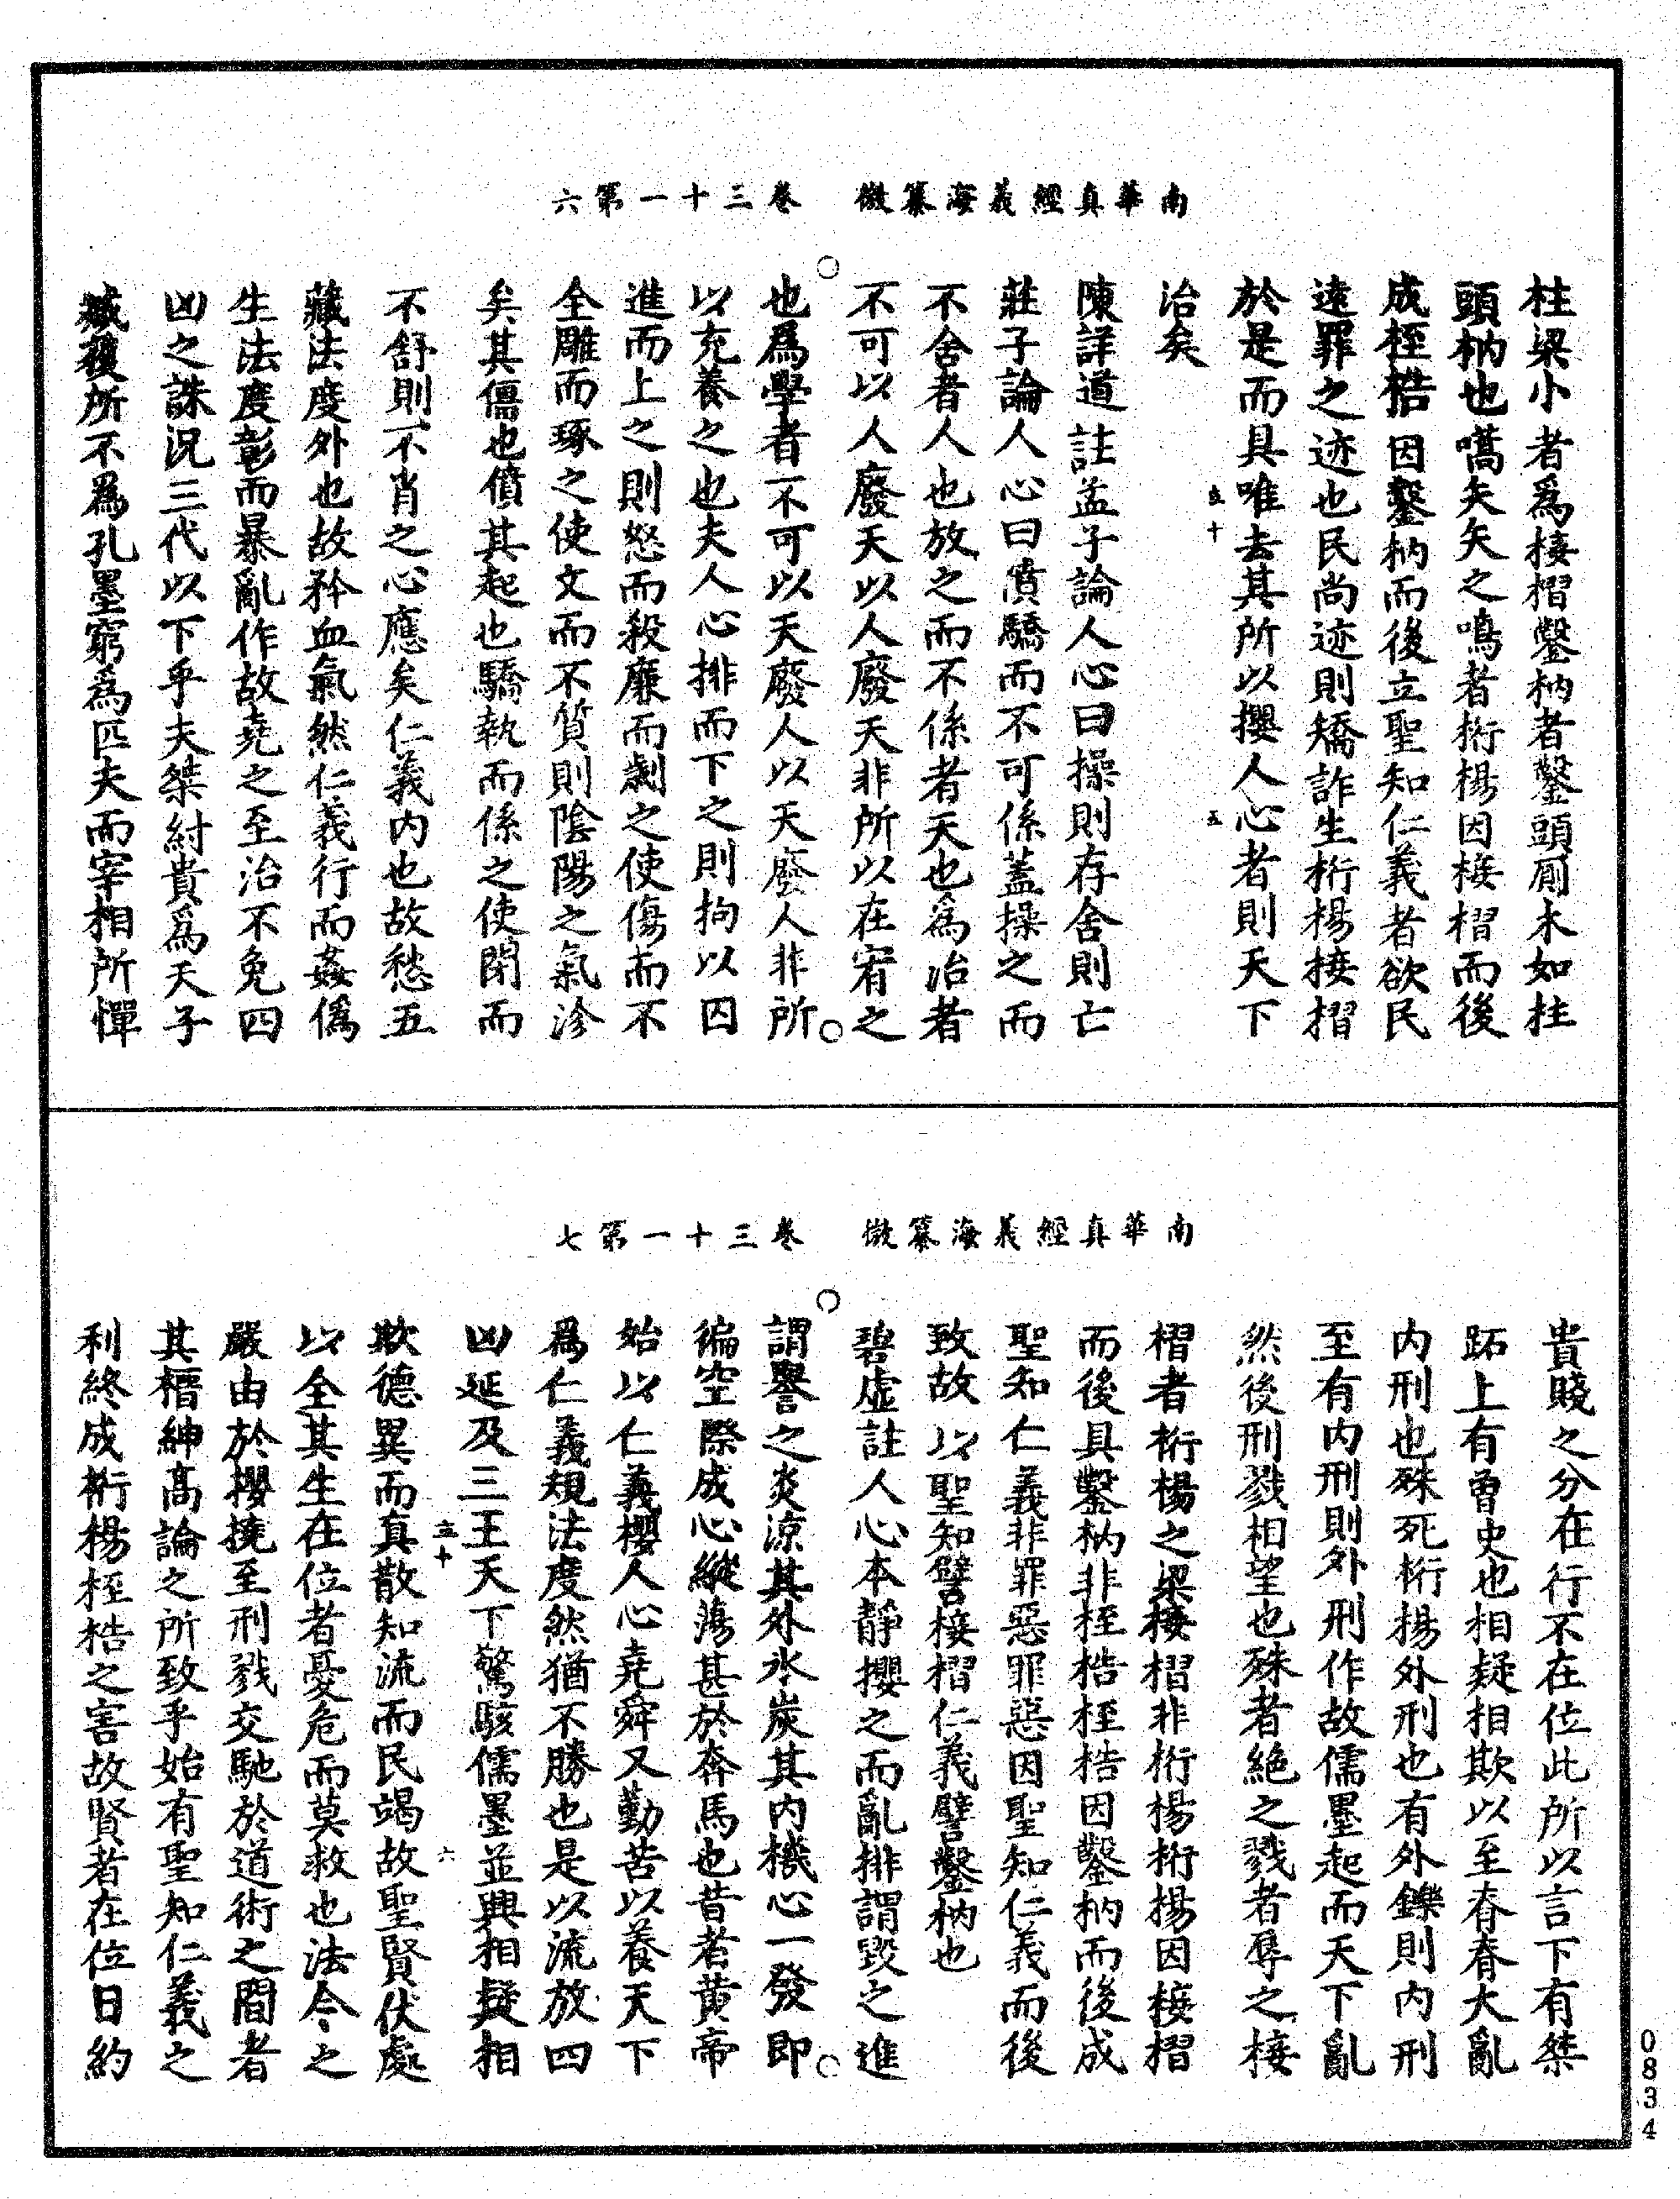 南華真經義海纂微　卷三十一第六
柱梁小者爲椄槢鑿枘者鑿頭厠木如柱
頭枘也嚆矢矢之鳴者桁楊因椄槢而後
成桎梏因鑿枘而後立聖知仁義者欲民
遠罪之迹也民尚迹則矯詐生桁楊接摺
於是而具唯去其所以攖人心者則天下
治矣
陳詳道註孟子論人心曰操則存舍則亡
莊子論人心曰僨驕而不可係蓋操之而
不舍者人也放之而不係者天也爲治者
不可以人廢天以人廢天非所以在宥之
也爲學者不可以天廢人以天廢人非所
以充養之也夫人心排而下之則拘以囚
進而上之則怒而殺廉而劌之使傷而不
全雕而琢之使文而不質則陰陽之氣沴
矣其傷也僨其起也驕執而係之使閉而
不舒則不肖之心應矣仁義内也故愁五
藏法度外也故矜血氣然仁義行而姦僞
生法度彰而暴亂作故堯之至治不免四
凶之誅況三代以下乎夫桀紂貴爲天子
臧穫所不爲孔墨窮爲匹夫而宰相所憚
五十
五
南華真經義海纂微　卷三十一第七
貴賤之分在行不在位此所以言下有桀
跖上有曾史也相疑相欺以至脊脊大亂
内刑也殊死桁楊外刑也有外鑠則内刑
至有内刑則外刑作故儒墨起而天下亂
然後刑戮相望也殊者絶之戮者辱之椄
槢者桁楊之梁椄槢非桁楊桁楊因椄槢
而後具鑿枘非桎梏桎梏因鑿枘而後成
聖知仁義非罪惡罪惡因聖知仁義而後
致故以聖知譬椄槢仁義譬鑿枘也
碧虚註人心本靜攖之而亂排謂毀之進
謂譽之炎涼其外氷炭其内機心一發即
徧空際成心縱蕩甚於奔馬也昔者黄帝
始以仁義攖人心堯舜又勤苦以養天下
爲仁義規法度然猶不勝也是以流放四
凶延及三王天下驚駭儒墨並興相疑相
欺德異而真散知流而民竭故聖賢伏處
以全其生在位者憂危而莫救也法令之
嚴由於攖撓至刑戮交馳於道術之間者
其搢紳高論之所致乎始有聖知仁義之
利終成桁楊桎梏之害故賢者在位日約
五十
六
0834